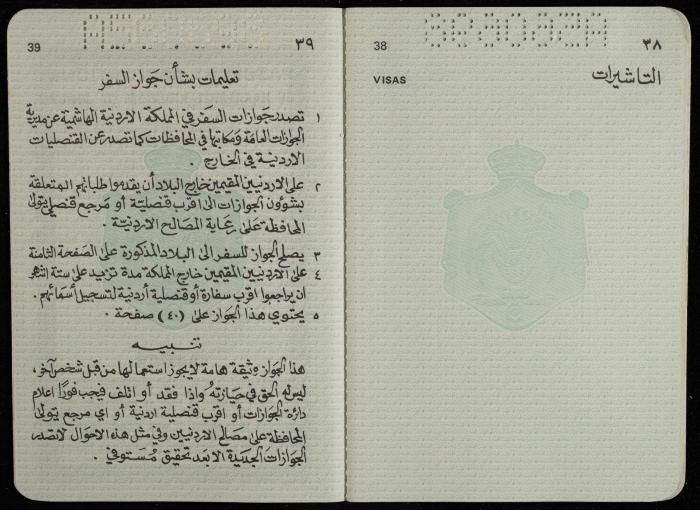 39
٣٩
تعليمات بشأن جواز السفر
١ تصدر جوازات السفر في المملكة الاردنية الهاشمية عن مديرية
الجوازات العامة ومكاتبها في المحافظات كما تصدر عن القنصليات
الاردنية في الخارج .
٢ على الاردنيين المقيمين خارج البلاد أن يقدموا طلباتهم المتعلقة
بشؤون الجوازات الى اقرب قنصلية أو مرجع قنصلي يتولى
المحافظة على رعاية المصالح الاردنية .
٣ يصلح الجواز للسفر الى البلاد المذكورة على الصفحة الثامنة
٤ على الاردنيين المقيمين خارج المملكة مدة تزيد على ستة اشهر
ان يراجعوا اقرب سفارة أو قنصلية أردنية لتسجيل أسمائهم .
٥ يحتوي هذا الجواز على (٤٠) صفحة .
تنبيه
هذا الجواز وثيقة هامة لايجوز استعمالها من قبل شخص آخر،
ليس له الحق في حيازته واذا فقد أو اتلف فيجب فورًا اعلام
دائرة الجوازات أو اقرب قنصلية اردنية أو اي مرجع يتولى
المحافظة على مصالح الاردنيين وفي مثل هذه الاحوال لاتصدر
الجوازات الجديدة الا بعد تحقيق مستوفي .
38
٣٨
VISAS
التاشيرات